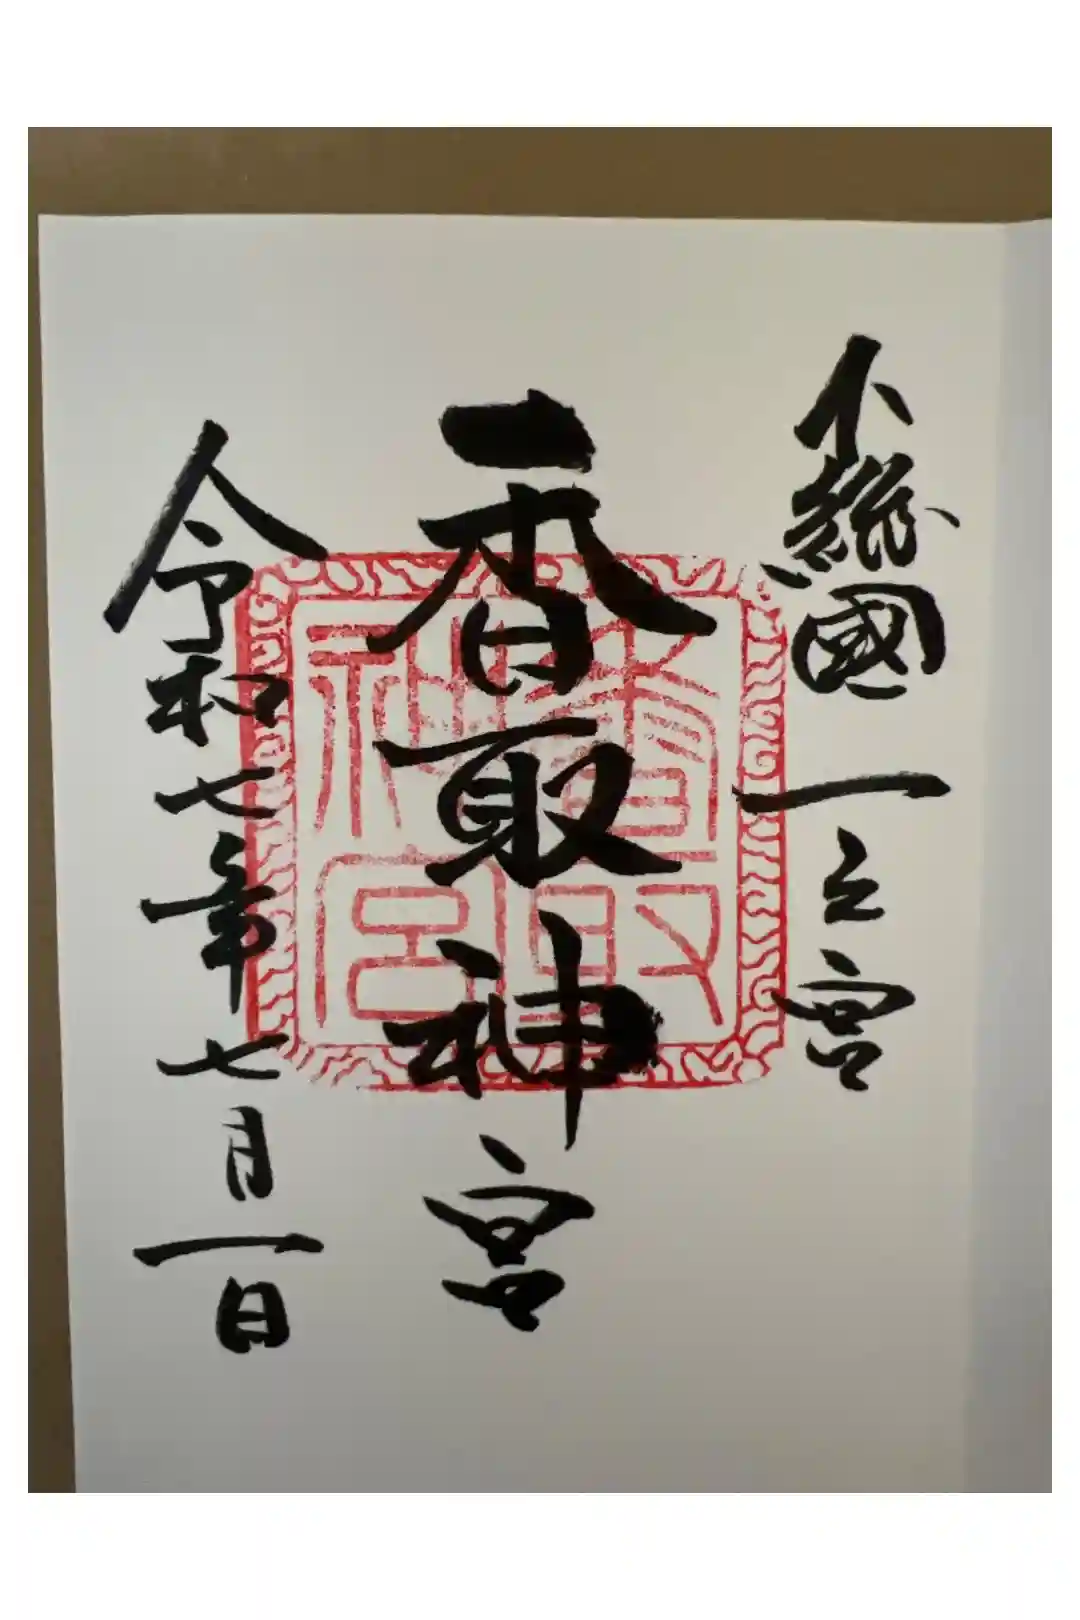 下総國 一之宮
香取神宮
香取神宮
令和七年七月一日